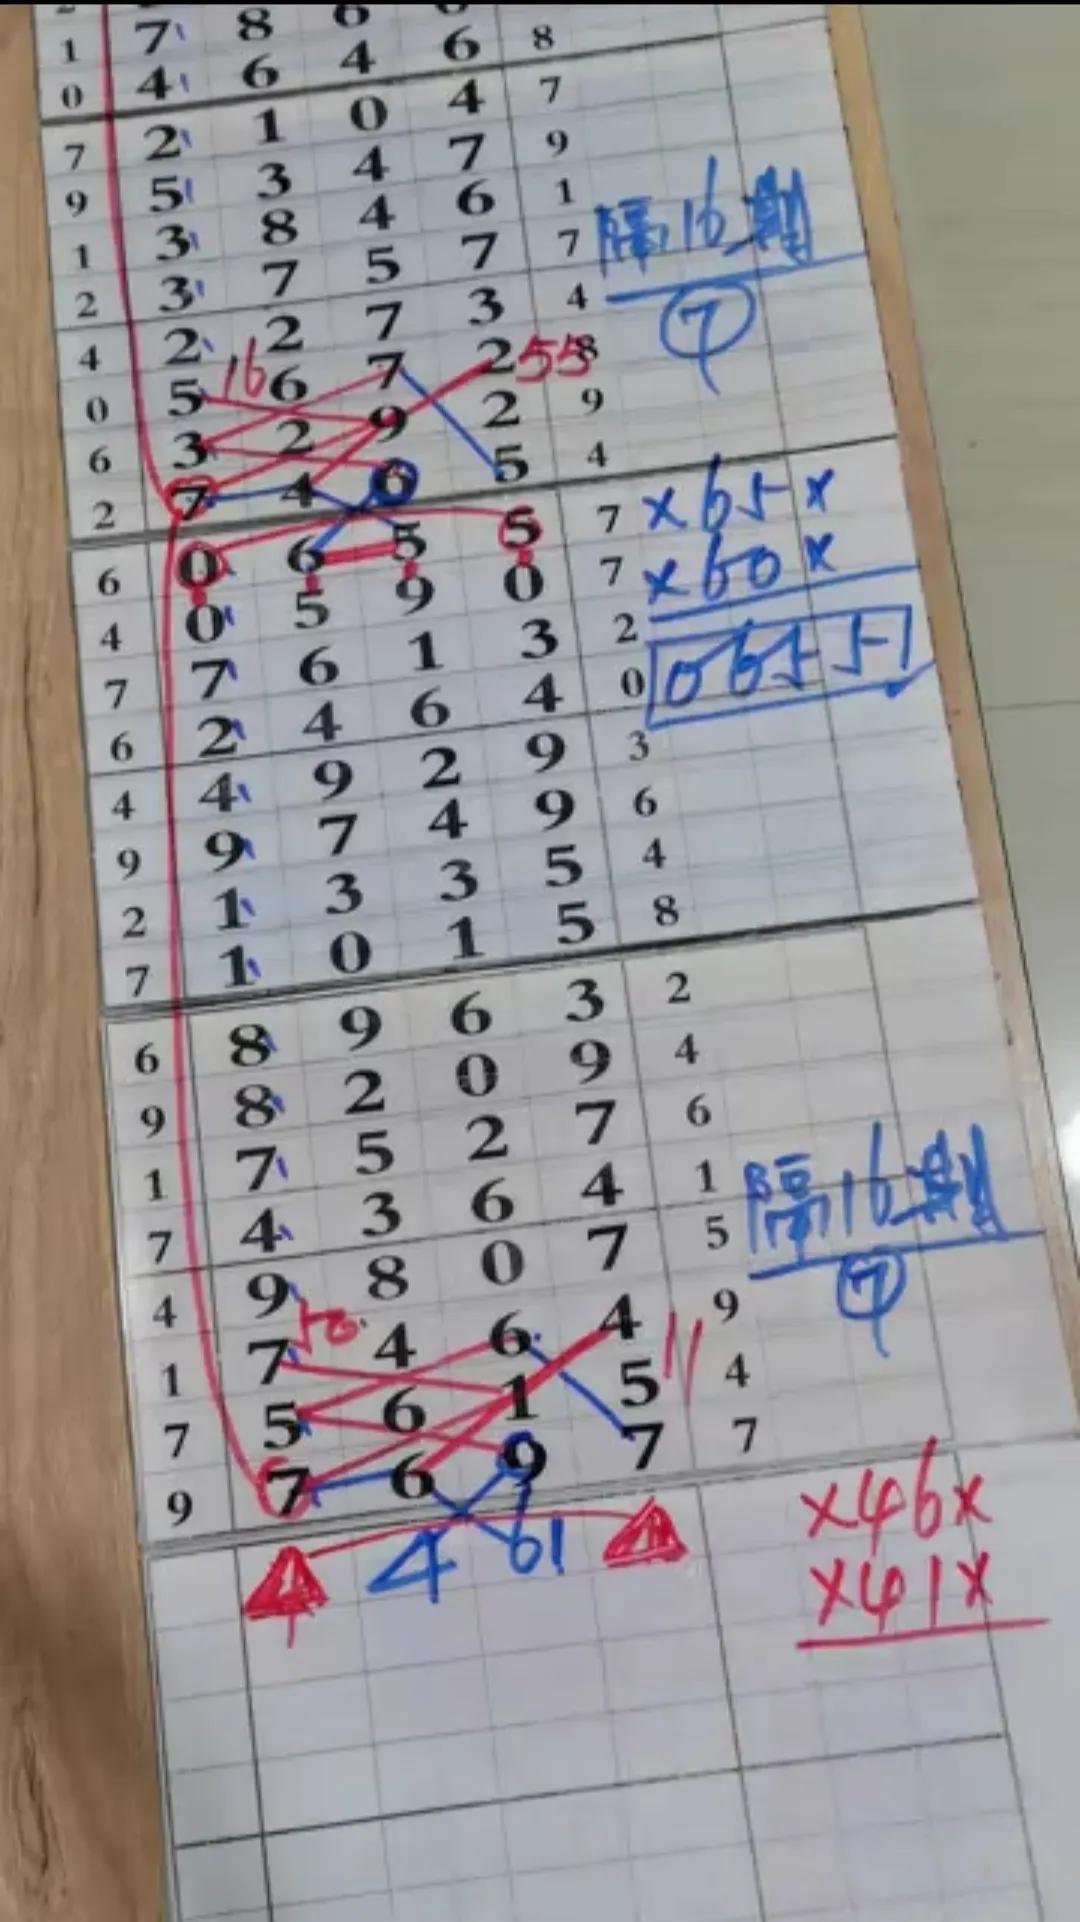 1 7 8 6
0 4 6 4 6 8
7 2 1 0 4 7
9 5 3 4 7 9
1 3 8 4 6 1 隔16期
2 3 7 5 7 7
4 2 2 7 3 4 7
0 5 16 6 7 2 55 8
6 3 2 9 2 9
2 7 4 6 5 4
6 0 6 5 5 7 x65x
4 0 5 9 0 7 x60x
7 7 6 1 3 2
6 2 4 6 4 0 0655
4 4 9 2 9 3
9 9 7 4 9 6
2 1 3 3 5 4
7 1 0 1 5 8
6 8 9 6 3 2
9 8 2 0 9 4
1 7 5 2 7 6
7 4 3 6 4 1 隔16期
4 9 8 0 7 5 7
1 7 50 4 6 4 9
7 5 6 1 5 11 4
9 7 6 9 7 7
1 4 61 1 x46x
x41x